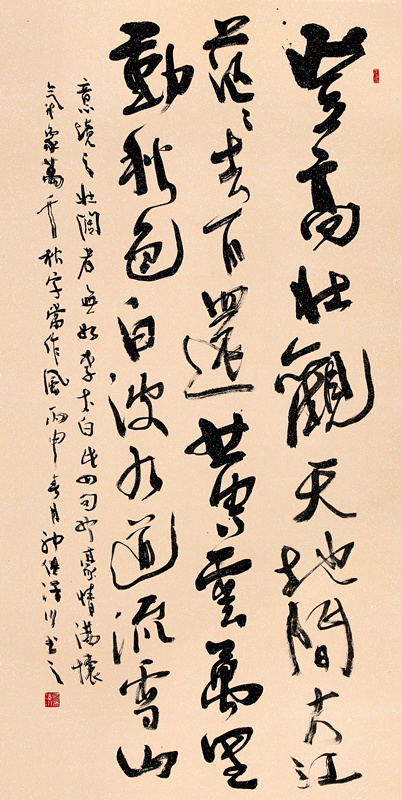 登高壯觀天地間大江
茫茫去不還黃雲萬里
動秋色白波九道流雪山
意境之壯闊者無如李太白此四句豪情滿懷
氣象萬千秋字當作風丙申春月書之